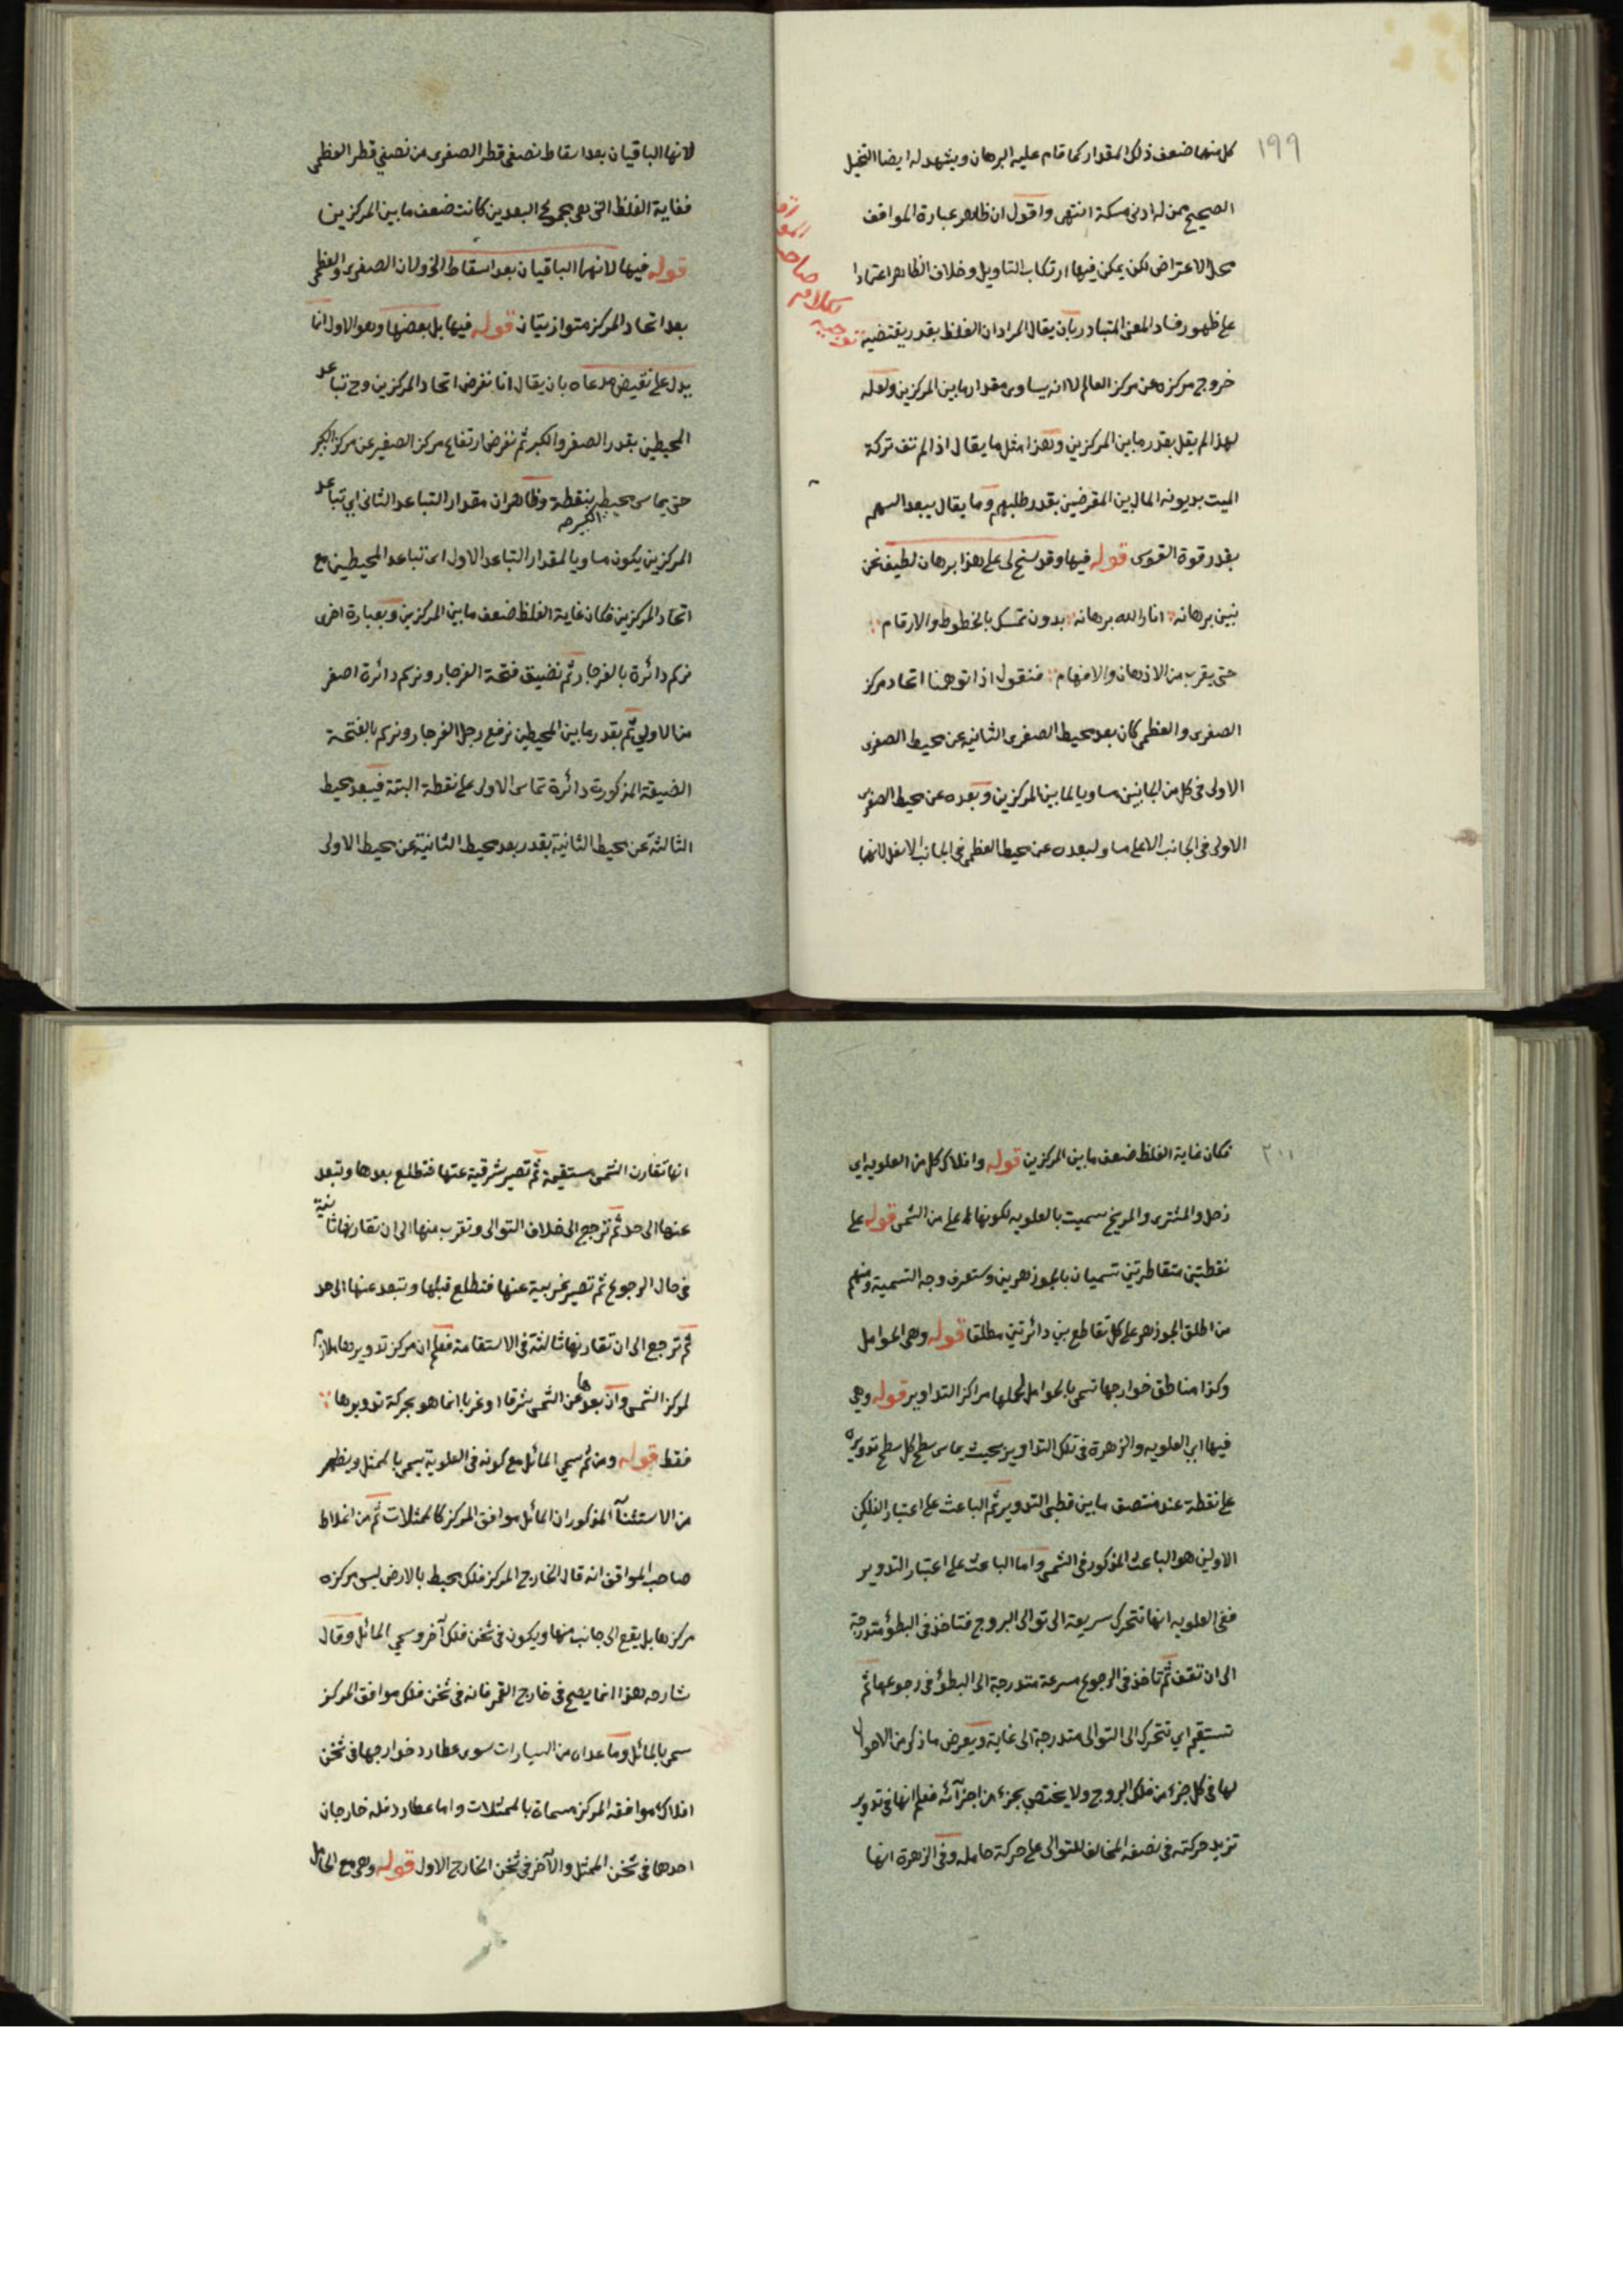 ١٩٩
كل منهما ضعف ذلك المقدار كما قام عليه البرهان ويشهد له ايضا التخيل
الصحيح ممن له ادنى مسكة انتهى واقول ان ظاهر عبارة المواقف
محل الاعتراض لكن يمكن فيها ارتكاب التاويل وخلاف الظاهر اعتمادا
على ظهور فساد المعنى المتبادر بان يقال المراد ان الغلظ بقدر يقتضيه
خروج مركزه عن مركز العالم لا انه يساوى مقدار ما بين المركزين ولعله
لهذا لم يقل بقدر ما بين المركزين وهذا مثل ما يقال اذا لم تف تركة
الميت بديونه المال بين المقرضين بقدر طلبهم وما يقال يبعد السهم
بقدر قوة القوى قوله فيها وقد سنح لى على هذا برهان لطيف نحن
نبين برهانه انار الله برهانه بدون تمسك بالخطوط والارقام
حتى يقرب من الاذهان والافهام فنقول اذا توهمنا اتحاد مركز
الصغرى والعظمى كان بعد محيط الصغرى الثانية عن محيط الصغرى
الاولى فى كل من الجانبين مساويا لما بين المركزين وبعده عن محيط الصغرى
الاولى فى الجانب الاعلى مساو لبعده عن محيط العظمى فى الجانب الاسفل لانهما
صاحب
كلام
توجيه
لانها الباقيان بعد اسقاط نصفى قطر الصغرى من نصفى قطر العظمى
فغاية الغلظ التى هى مجموع البعدين كانت ضعف ما بين المركزين
قوله فيها لانهما الباقيان بعد اسقاط الخ ولان الصغرى والعظمى
بعد اتحاد المركز متوازيتان قوله فيها بل بعضها وهو الاول انما
يدل على نقيض مدعاه بان يقال انا نفرض اتحاد المركزين وح تباعد
المحيطين بقدر الصغر والكبر ثم نفرض ارتفاع مركز الصغير عن مركز الكبير
حتى يماس محيطه بنقطة وظاهر ان مقدار التباعد الثانى اى تباعد
الكبير صح
المركزين يكون مساويا لمقدار التباعد الاول اى تباعد المحيطين مع
اتحاد المركزين فكان غاية الغلظ ضعف ما بين المركزين وبعبارة اخرى
نرسم دائرة بالفرجار ثم نضيق فتحة الفرجار ونرسم دائرة اصغر
من الاولى ثم بقدر ما بين المحيطين نرفع رجل الفرجار ونرسم بالفتحة
الضيقة المذكورة دائرة تماس الاولى على نقطة البتة فيبعد محيط
الثالثة عن محيط الثانية بقدر بعد محيط الثانية عن محيط الاولى
٢٠٠
فكان غاية الغلظ ضعف ما بين المركزين قوله وافلاك كل من العلويه اى
زحل والمشترى والمريخ سميت بالعلويه لكونها اعلى من الشمس قوله على
نقطتين متقاطرتين تسميان بالجوزهرين وستعرف وجه التسمية ومنهم
من اطلق الجوزهر على كل تقاطع بين دائرتين مطلقا قوله وهى الحوامل
وكذا مناطق خوارجها تسمى بالحوامل لحملها مراكز التداوير قوله وهى
فيها اى العلويه والزهرة فى تلك التداوير بحيث يماس سطح كل سطح تدويره
على نقطة عند منتصف ما بين قطبى التدوير ثم الباعث على اعتبار الفلكين
الاولين هو الباعث المذكور فى الشمس واما الباعث على اعتبار التدوير
ففى العلويه انها تتحرك سريعة الى توالى البروج فتاخذ فى البطؤ متدرجة
الى ان تقف ثم تاخذ فى الرجوع مسرعة متدرجة الى البطؤ فى رجوعها ثم
تستقيم اى تتحرك الى التوالى متدرجة الى غاية ويعرض ما ذكر من الاحوال
لها فى كل جزء من فلك البروج ولا يختص بجزء من اجزآئه فعلم انها فى تدوير
تزيد حركته فى نصفه المخالف للتوالى على حركة حامله وفى الزهرة انها
انها تقارن الشمس مستقيمة ثم تصير شرقية عنها فتطلع بعدها وتبعد
عنها الى حد ثم ترجع الى خلاف التوالى وتقرب منها الى ان تقارنها ثانية
فى حال الرجوع ثم تصير غربية عنها فتطلع قبلها وتبعد عنها الى حد
ثم ترجع الى ان تقارنها ثالثة فى الاستقامة فعلم ان مركز تدويرها ملازم
لمركز الشمس وان بعدها عن الشمس شرقا او غربا انما هو بحركة تدويرها
فقط قوله ومن ثم سمي المائل مع كونه فى العلوية يسمى بالممثل ويظهر
من الاستثنآ المذكور ان المائل موافق المركز كالممثلات ثم من اغلاط
صاحب المواقف انه قال الخارج المركز فلك محيط بالارض ليس مركزه
مركزها بل يقع الى جانب منها ويكون فى ثخن فلك آخر وسمي المائل وقال
شارحه هذا انما يصح فى خارج القمر فانه فى ثخن فلك موافق المركز
سمى بالمائل وما عداه من السيارات سوى عطارد خوارجها فى ثخن
افلاك موافقة المركز مسماة بالممثلات واما عطارد فله خارجان
احدها فى ثخن الممثل والآخر فى ثخن الخارج الاول قوله وهى مع الحامل